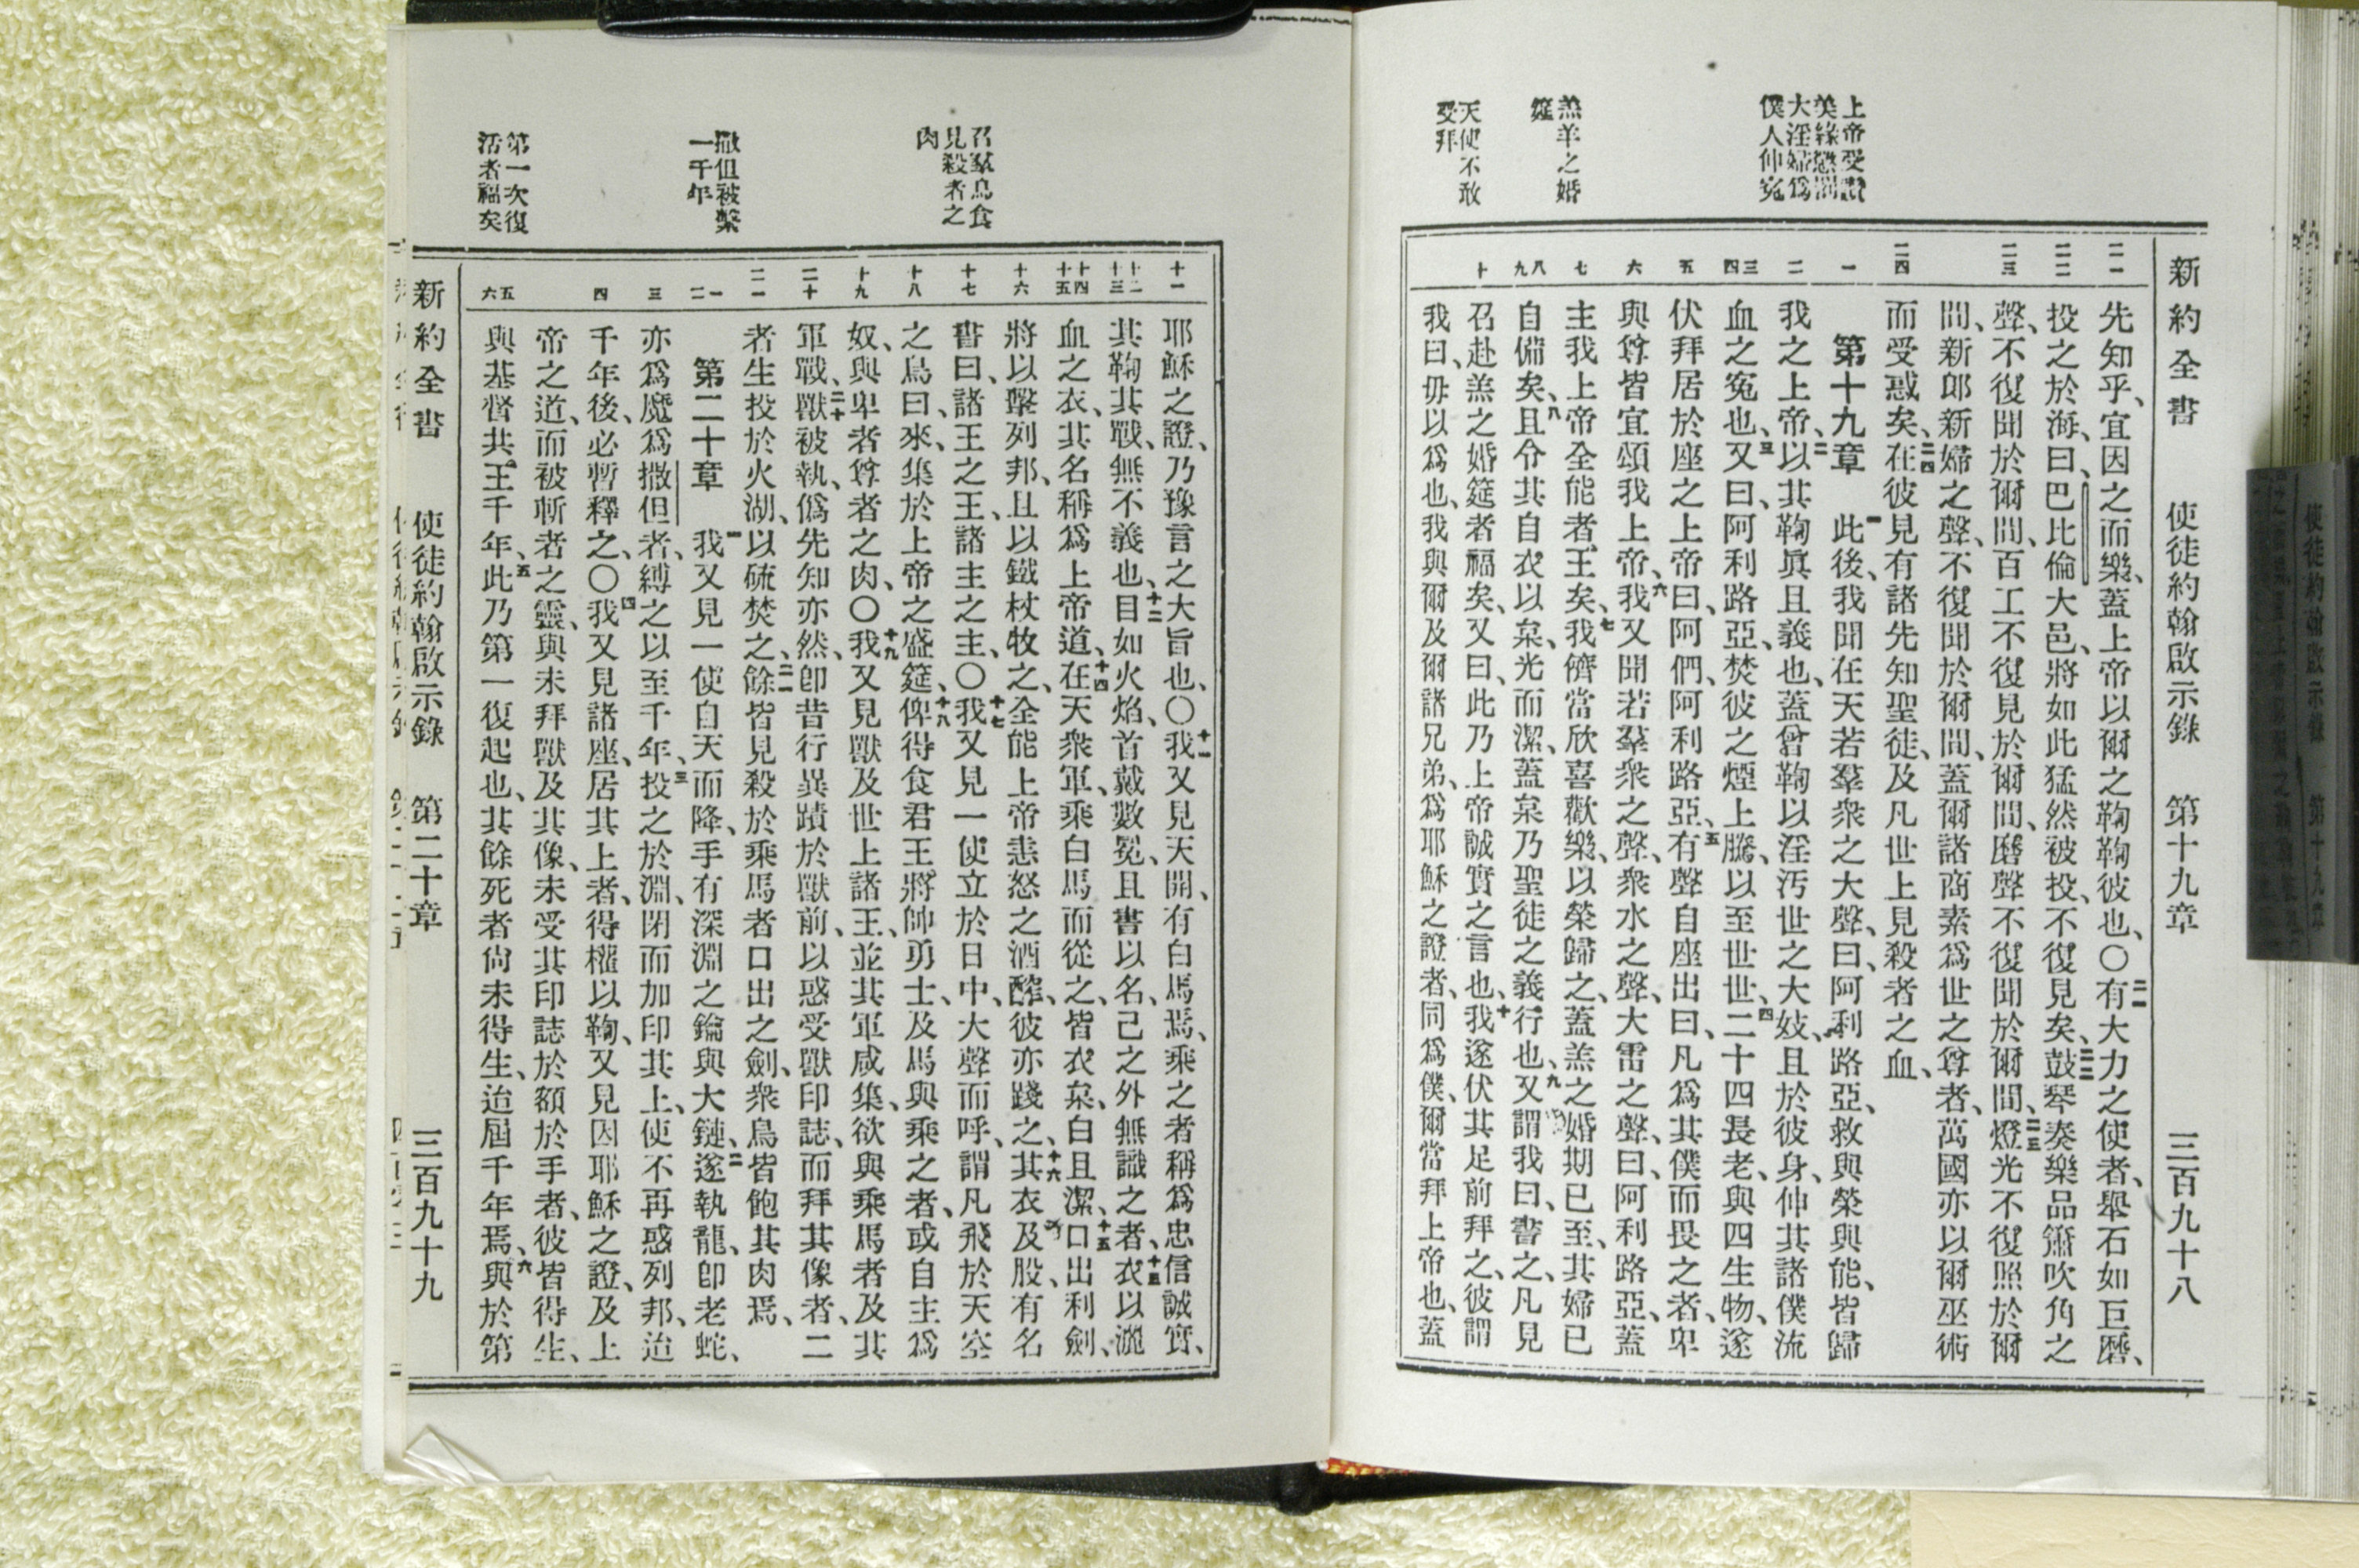 新約全書 使徒約翰啟示錄 第十九章 三百九十八
上帝受讚
美緣懲罰
大淫婦爲
僕人伸寃
羔羊之婚
筵
天使不敢
受拜
二一 二二 二三 二四 一 二 三 四 五 六 七 八 九 十
先知乎、宜因之而樂、蓋上帝以爾之鞫鞫彼也、〇二一有大力之使者、舉石如巨磿、
投之於海、曰、巴比倫大邑、將如此猛然被投、不復見矣、二二鼓琴奏樂品簫吹角之
聲、不復聞於爾間、百工不復見於爾間、磿聲不復聞於爾間、二三燈光不復照於爾
間、新郎新婦之聲、不復聞於爾間、蓋爾諸商素爲世之尊者、萬國亦以爾巫術
而受惑矣、二四在彼見有諸先知聖徒、及凡世上見殺者之血、
第十九章 一此後、我聞在天若羣衆之大聲、曰、阿利路亞、救與榮與能、皆歸
我之上帝、二以其鞫眞且義也、蓋曾鞫以淫汚世之大妓、且於彼身、伸其諸僕流
血之寃也、三又曰、阿利路亞、焚彼之煙上騰、以至世世、四二十四長老、與四生物、遂
伏拜居於座之上帝曰、阿們、阿利路亞、五有聲自座出曰、凡爲其僕而畏之者、卑
與尊皆宜頌我上帝、六我又聞若羣衆之聲、衆水之聲、大雷之聲、曰、阿利路亞、蓋
主我上帝全能者王矣、七我儕當欣喜歡樂、以榮歸之、蓋羔之婚期已至、其婦已
自備矣、八且令其自衣以枲、光而潔、蓋枲乃聖徒之義行也、九又謂我曰、書之、凡見
召赴羔之婚筵者福矣、又曰、此乃上帝誠實之言也、十我遂伏其足前拜之、彼謂
我曰、毋以爲也、我與爾及爾諸兄弟、爲耶穌之證者、同爲僕、爾當拜上帝也、蓋
召羣鳥食
見殺者之
肉
撒但被繫
一千年
第一次復
活者福矣
十一 十二 十三 十四 十五 十六 十七 十八 十九 二十 二一 一 二 三 四 五 六
耶穌之證、乃豫言之大旨也、〇十一我又見天開、有白馬焉、乘之者稱爲忠信誠實、
其鞫其戰、無不義也、十二目如火焰、首戴數冕、且書以名、己之外無識之者、十三衣以灑
血之衣、其名稱爲上帝道、十四在天衆軍、乘白馬而從之、皆衣枲、白且潔、十五口出利劍、
將以擊列邦、且以鐵杖牧之、全能上帝恚怒之酒醡、彼亦踐之、十六其衣及股、有名
書曰、諸王之王、諸主之主、〇十七我又見一使立於日中、大聲而呼、謂凡飛於天空
之鳥曰、來、集於上帝之盛筵、十八俾得食君王將帥勇士、及馬與乘之者、或自主爲
奴、與卑者尊者之肉、〇十九我又見獸及世上諸王、並其軍咸集、欲與乘馬者及其
軍戰、二十獸被執、僞先知亦然、卽昔行異蹟於獸前、以惑受獸印誌、而拜其像者、二
者生投於火湖、以硫焚之、二一餘皆見殺於乘馬者口出之劍、衆鳥皆飽其肉焉、
第二十章 一我又見一使自天而降、手有深淵之鑰與大鏈、二遂執龍、卽老蛇、
亦爲魔爲撒但者、縛之以至千年、三投之於淵、閉而加印其上、使不再惑列邦、迨
千年後、必暫釋之、〇四我又見諸座、居其上者、得權以鞫、又見因耶穌之證、及上
帝之道、而被斬者之靈、與未拜獸及其像、未受其印誌於額於手者、彼皆得生、
與基督共王千年、五此乃第一復起也、其餘死者尙未得生、迨屆千年焉、六與於第
新約全書 使徒約翰啟示錄 第二十章 三百九十九